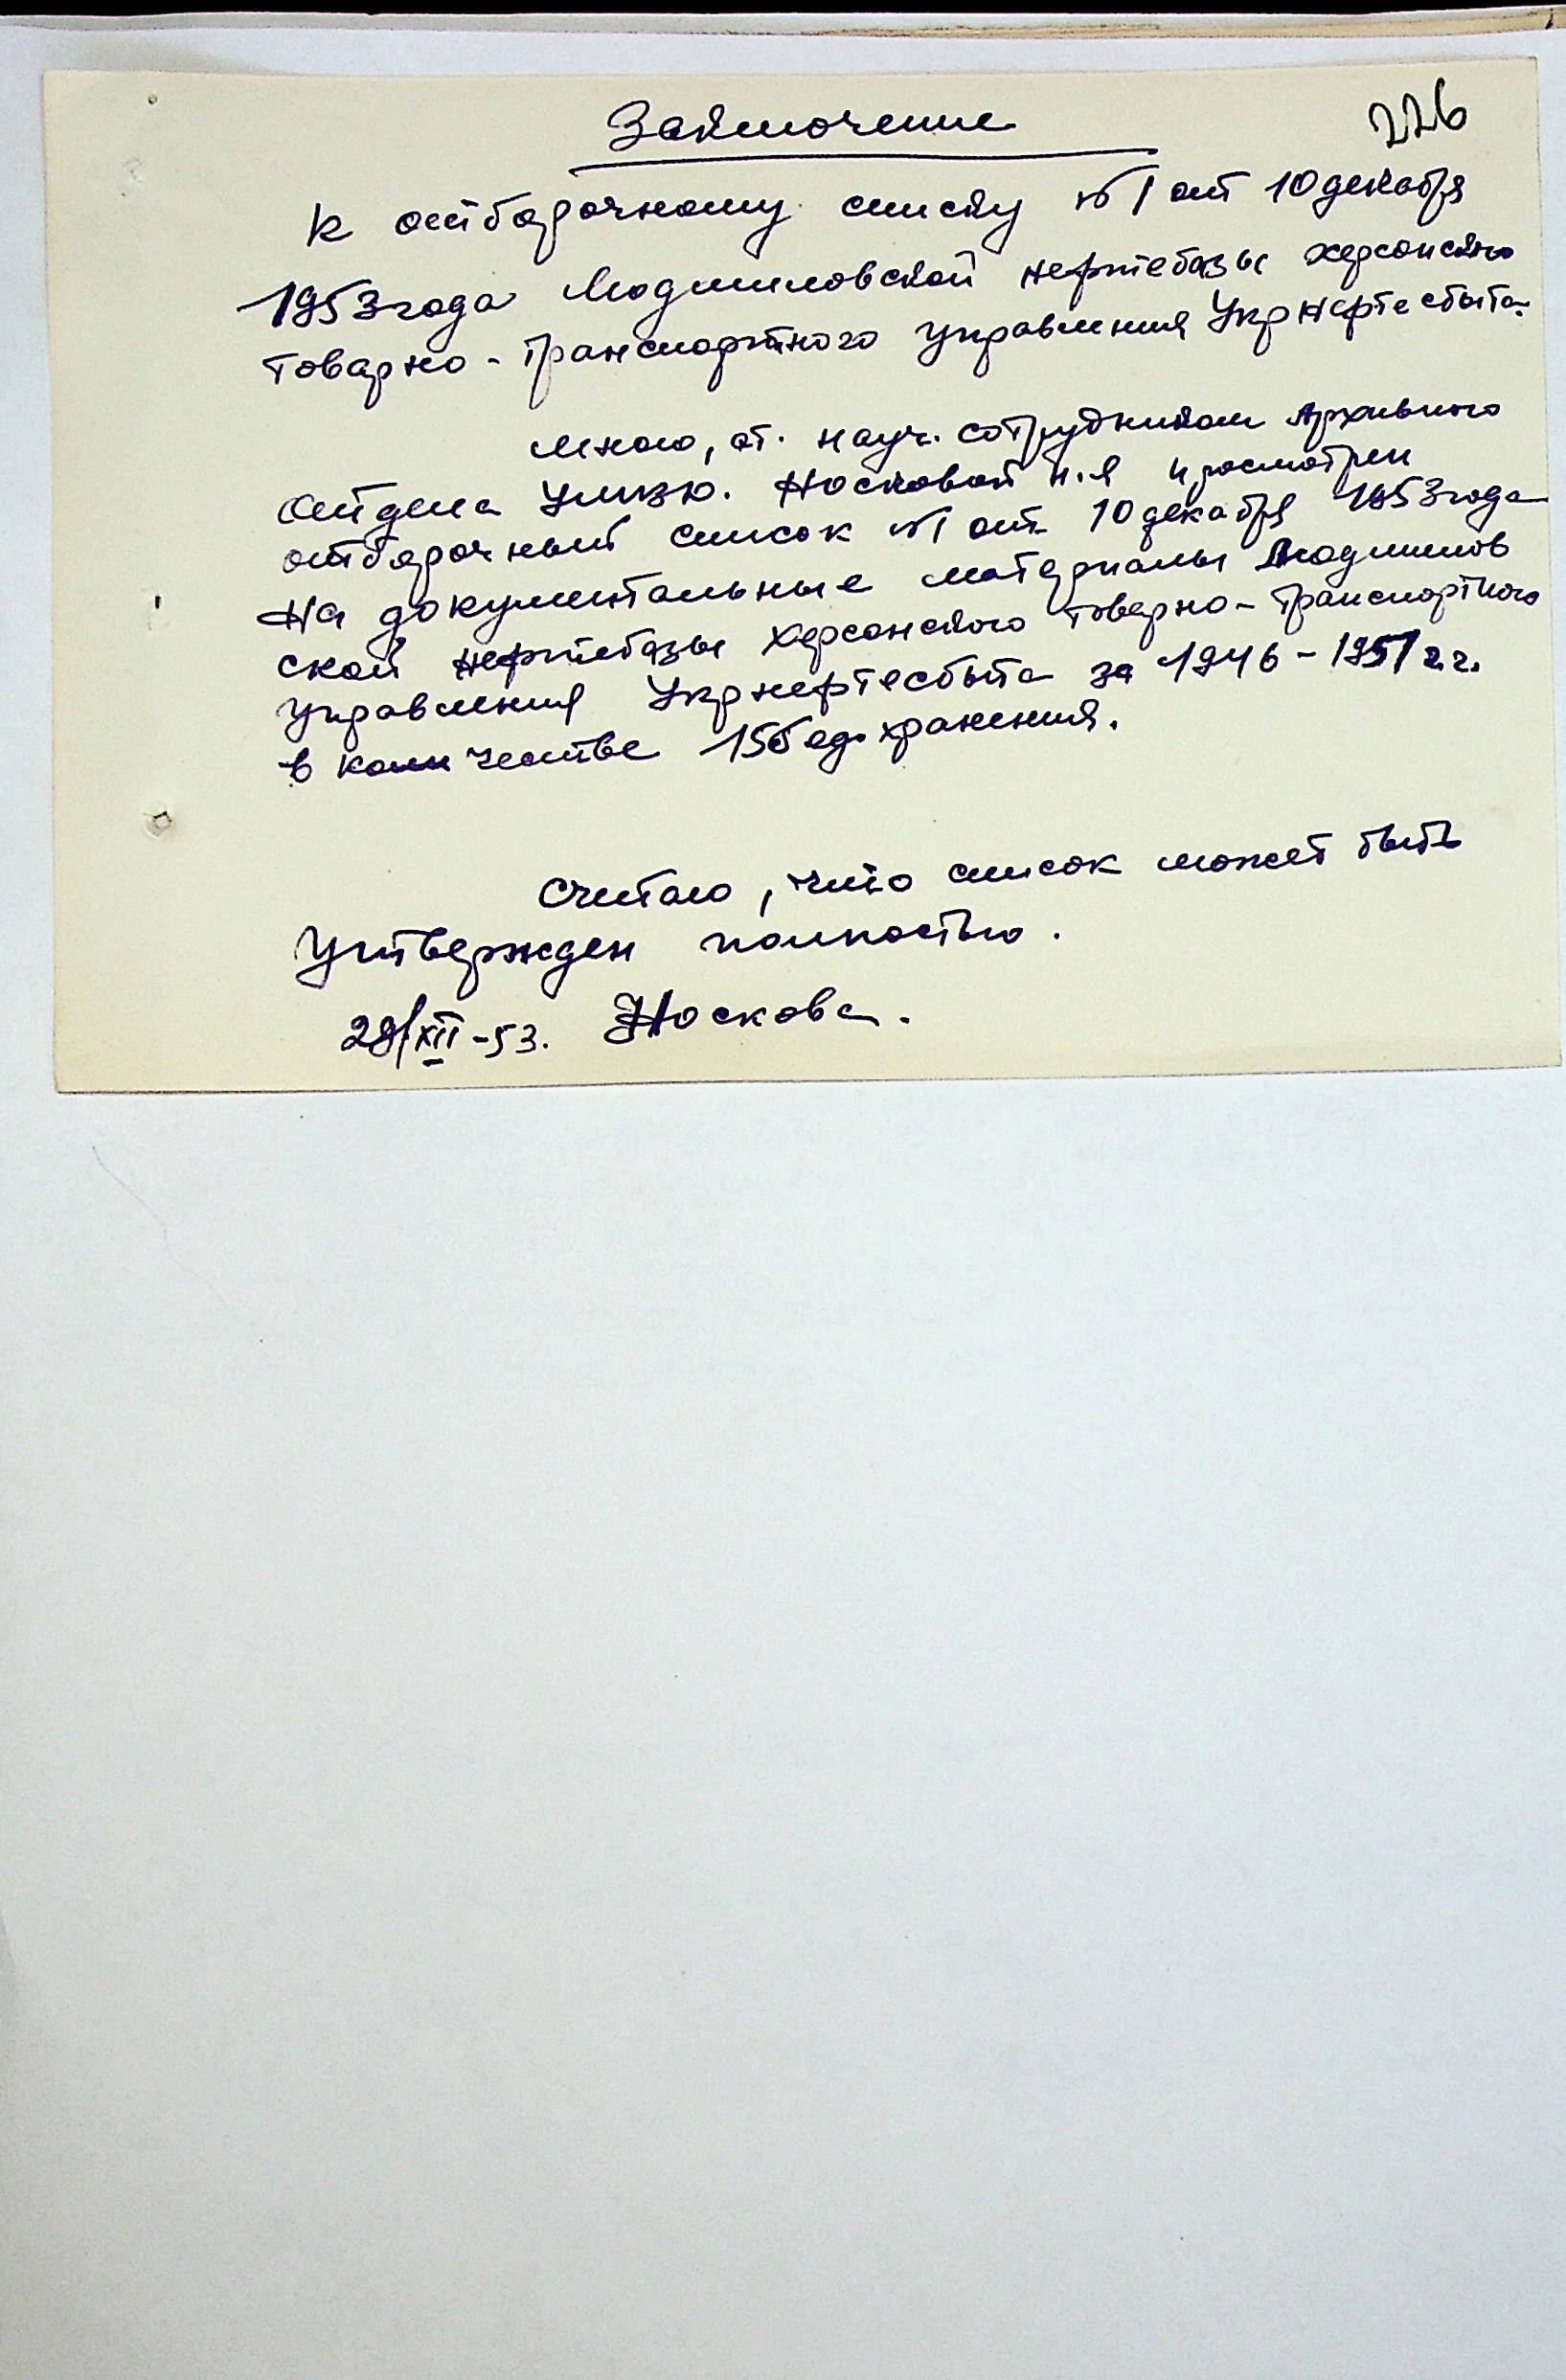 226
Заключение
к отборочному списку №1 от 10 декабря
1953 года Людмиловской нефтебазы херсонского
товарно-транспортного управления Укрнефтесбыта.
Мною, ст. науч. сотрудником Архивного
отдела УМВЮ. Носковой Н.Я просмотрен
отборочный список №1 от 10 декабря 1953 года
на документальные материалы Людмилов
ской нефтебазы Херсонского товарно-транспортного
управления Укрнефтесбыта за 1946-1951 г.г.
в количестве ед. хранения.
Считаю, что список может быть
утвержден полностью.
29/XII-53. Носкова.